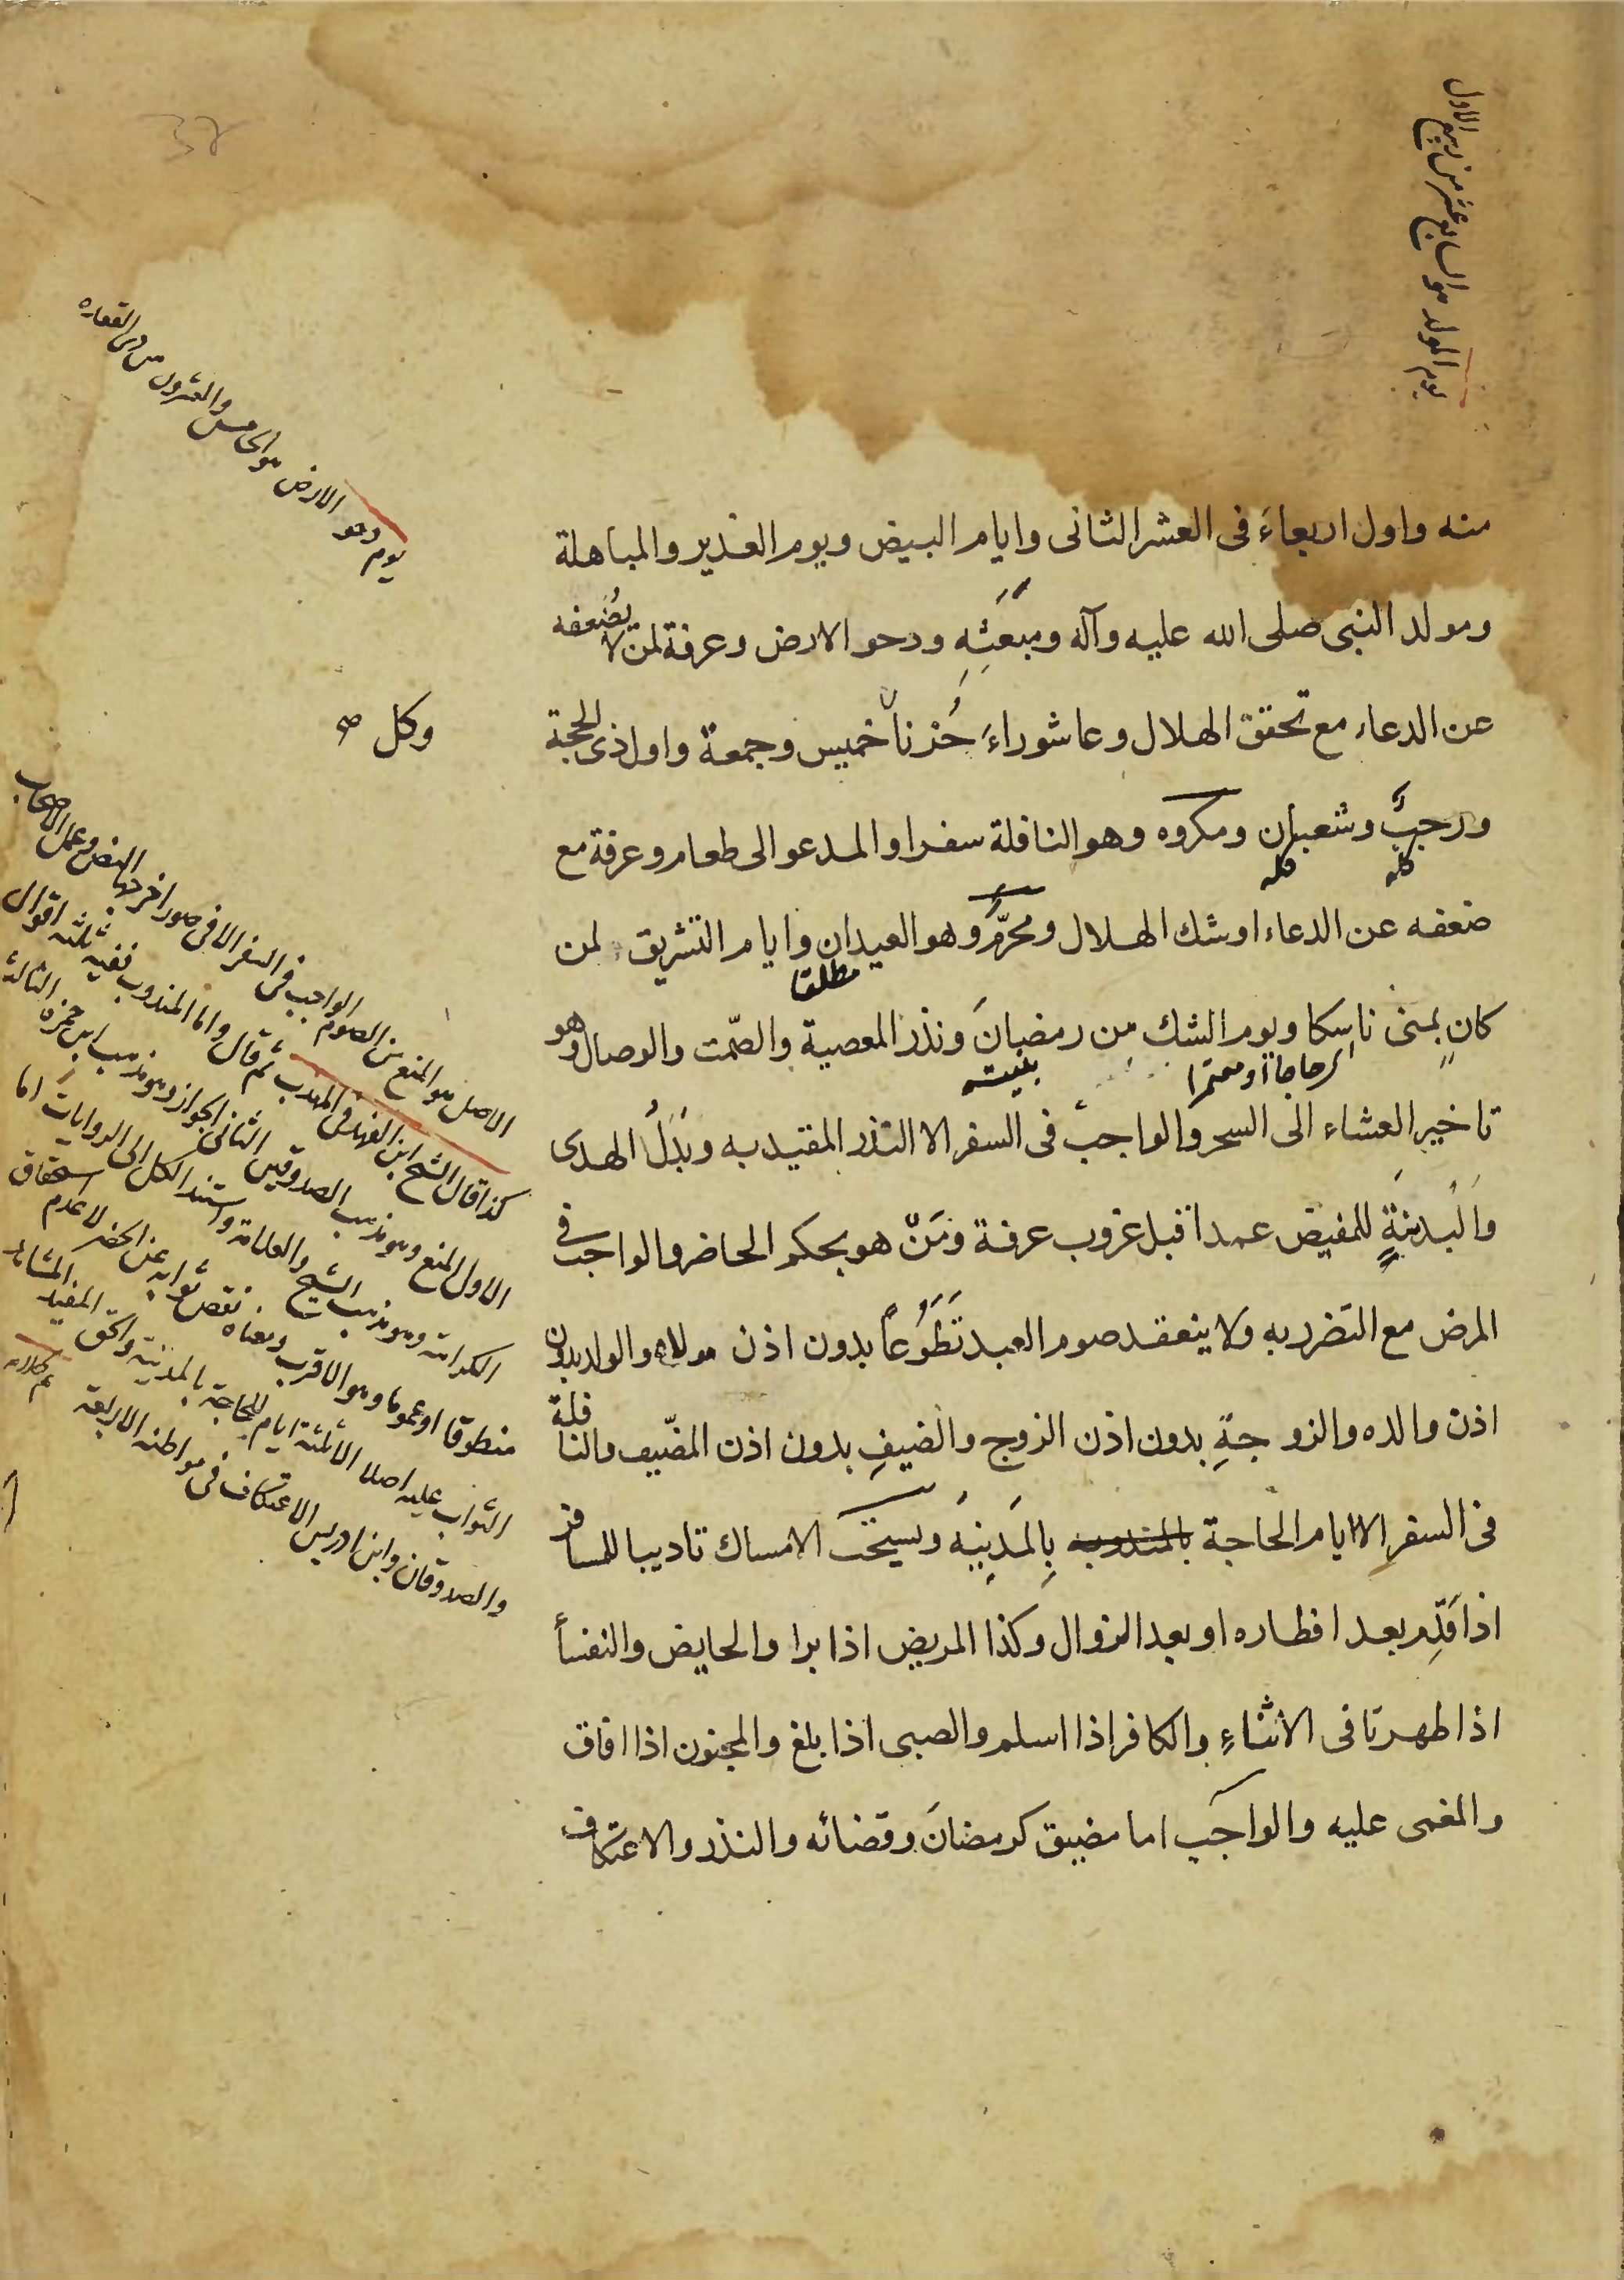 يوم المولد هو السابع عشر من ربيع الاول
منه واول اربعاءَ فى العشر الثانى وايام البيض ويوم الغدير والمباهلة
ومولد النبى صلى الله عليه وآله ومبعَثِهِ ودحو الارض وعرفة لمن لا يضعفه
عن الدعاء مع تحقق الهلال وعاشوراءَ حُزناً خميس وجمعة واول ذى الحجة
وكل صح
ورجبٌ وشعبان ومكروه وهو النافلة سفرا والمدعو الى طعام وعرفة مع
كله كله
ضعفه عن الدعاء او شك الهلال ومحرّمٌ وهو العيدان وايام التشريق لمن
مطلقا
كان بمنى ناسكا ويوم الشك من رمضانَ ونذر المعصية والصّمت والوصال وهو
اى حاجا او معتمرا
بنيته
تاخير العشاء الى السحر والواجب فى السفر الا النذر المقيد به وبَدَلُ الهدى
والبدنةِ للمفيض عمداً قبل غروب عرفة ومَنْ هو بحكم الحاضر والواجب فى
المرض مع التضرر به ولا ينعقد صوم العبد تَطَوُعاً بدون اذن مولاه والولد بدون
اذن والده والزوجةِ بدون اذن الزوج والضيفِ بدون اذن المضيّف والنافلة
فى السفر الا ايام الحاجة بالمندوبه بِالمَدِينَه ويستحَبّ الامساك تاديبا للمسافر
اذا قَدِم بعد افطاره او بعد الزوال وكذا المريض اذا برا والحايض والنفسأ
اذا طهرتا فى الاثناءِ والكافر اذا اسلم والصبى اذا بلغ والمجنون اذا افاق
والمغمى عليه والواجَب اما مضيق كرمضانَ وقضائه والنذر والاعتكاف
يوم دحو الارض هو الخامس والعشرون من ذى القعده
الاصل هو المنع من الصوم الواجب فى السفر الا فى صور اخرجها النص وعمل الاصحاب
كذا قال الشيخ ابن الفهد فى المهذب ثم قال واما المندوب ففيه ثلثه اقوال
الاول المنع وهو مذهب الصدوقين الثانى الجواز وهو مذهب ابن حمزه الثالث
الكراهة وهو مذهب الشيخ والعلامة واستند الكل الى الروايات اما
منطوقا او عموما وهو الاقرب ومعناه نقص ثوابه عن الحضر لا عدم استحقاق
الثواب عليه اصلا الا ثلثة ايام للحاجة بالمدينة والحق المفيد المشاهد
والصدوقان وابن ادريس الاعتكاف فى مواطنه الاربعة تم كلامه